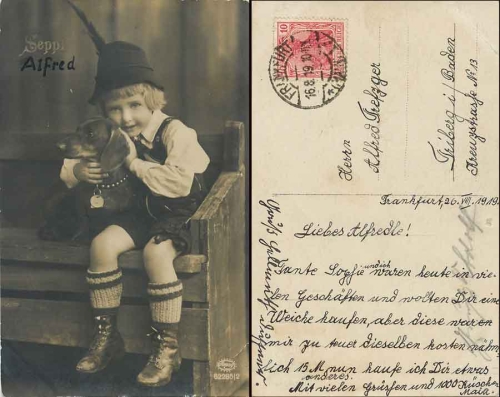 Seppl
Alfred
6299512
10
FRANKFURT
16.8.19.10-11
Herrn
Alfred Trefzger
Triberg i/ Baden
Kreuzstrasse No 13
Frankfurt 26. VIII. 1919.
Liebes Alfredle!
Tante Sophie und ich waren heute in vie-
len Geschäften und wollten Dir eine
Weiche kaufen, aber diese waren
mir zu teuer dieselben kosten näm-
lich 15 M, nun kaufe ich Dir etwas
anderes.
Mit vielen Grüßen und 1000 Küsschen
Maia.